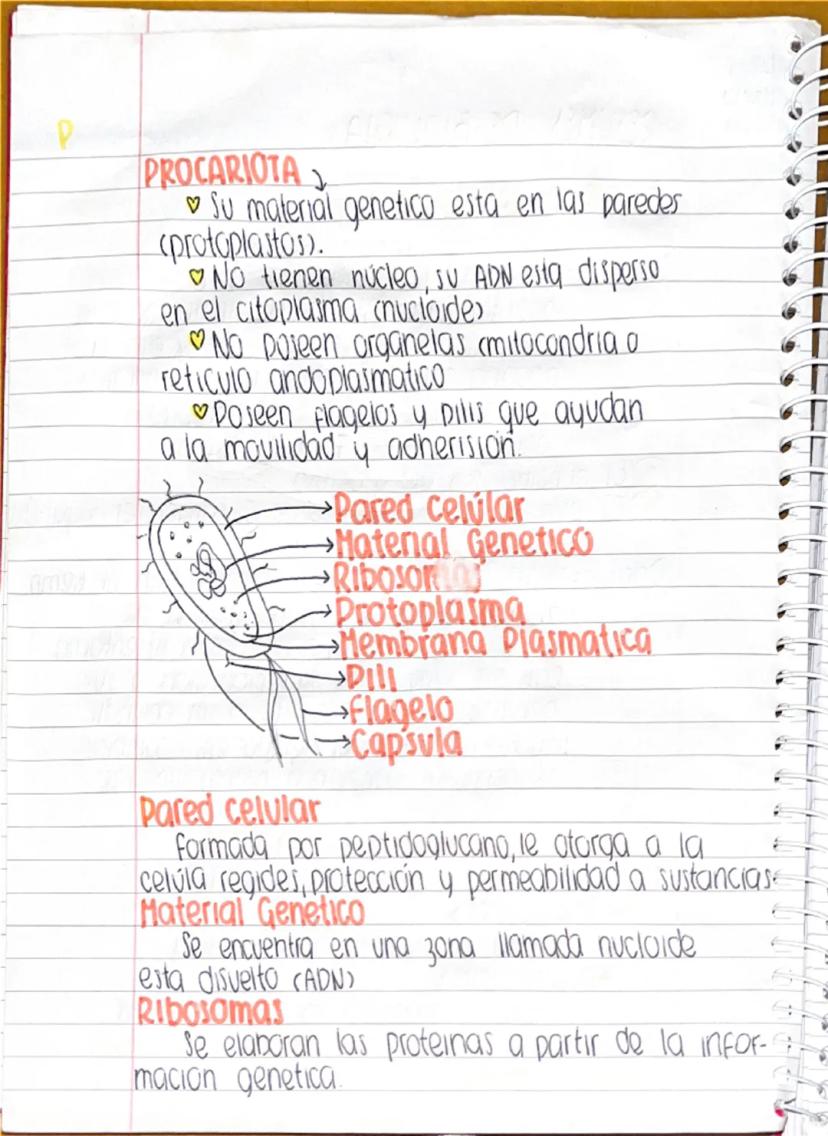 P
PROCARIOTA
♡ Su material genetico esta en las paredes
(protoplastos).
♡ No tienen núcleo, su ADN esta disperso
en el citoplasma (nucloide)
♡ No poseen organelas (mitocondria o
reticulo andoplasmatico
♡ Poseen flagelos y pilis que ayudan
a la movilidad y adherisión.
Pared celúlar
Material Genetico
Ribosomas
Protoplasma
Membrana Plasmatica
Pili
Flagelo
Capsula
Pared celular
Formada por peptidoglucano, le otorga a la
celúla regides, protección y permeabilidad a sustancias
Material Genetico
Se encuentra en una zona llamada nucloide
esta disuelto (ADN)
Ribosomas
Se elaboran las proteinas a partir de la infor-
mación genetica.